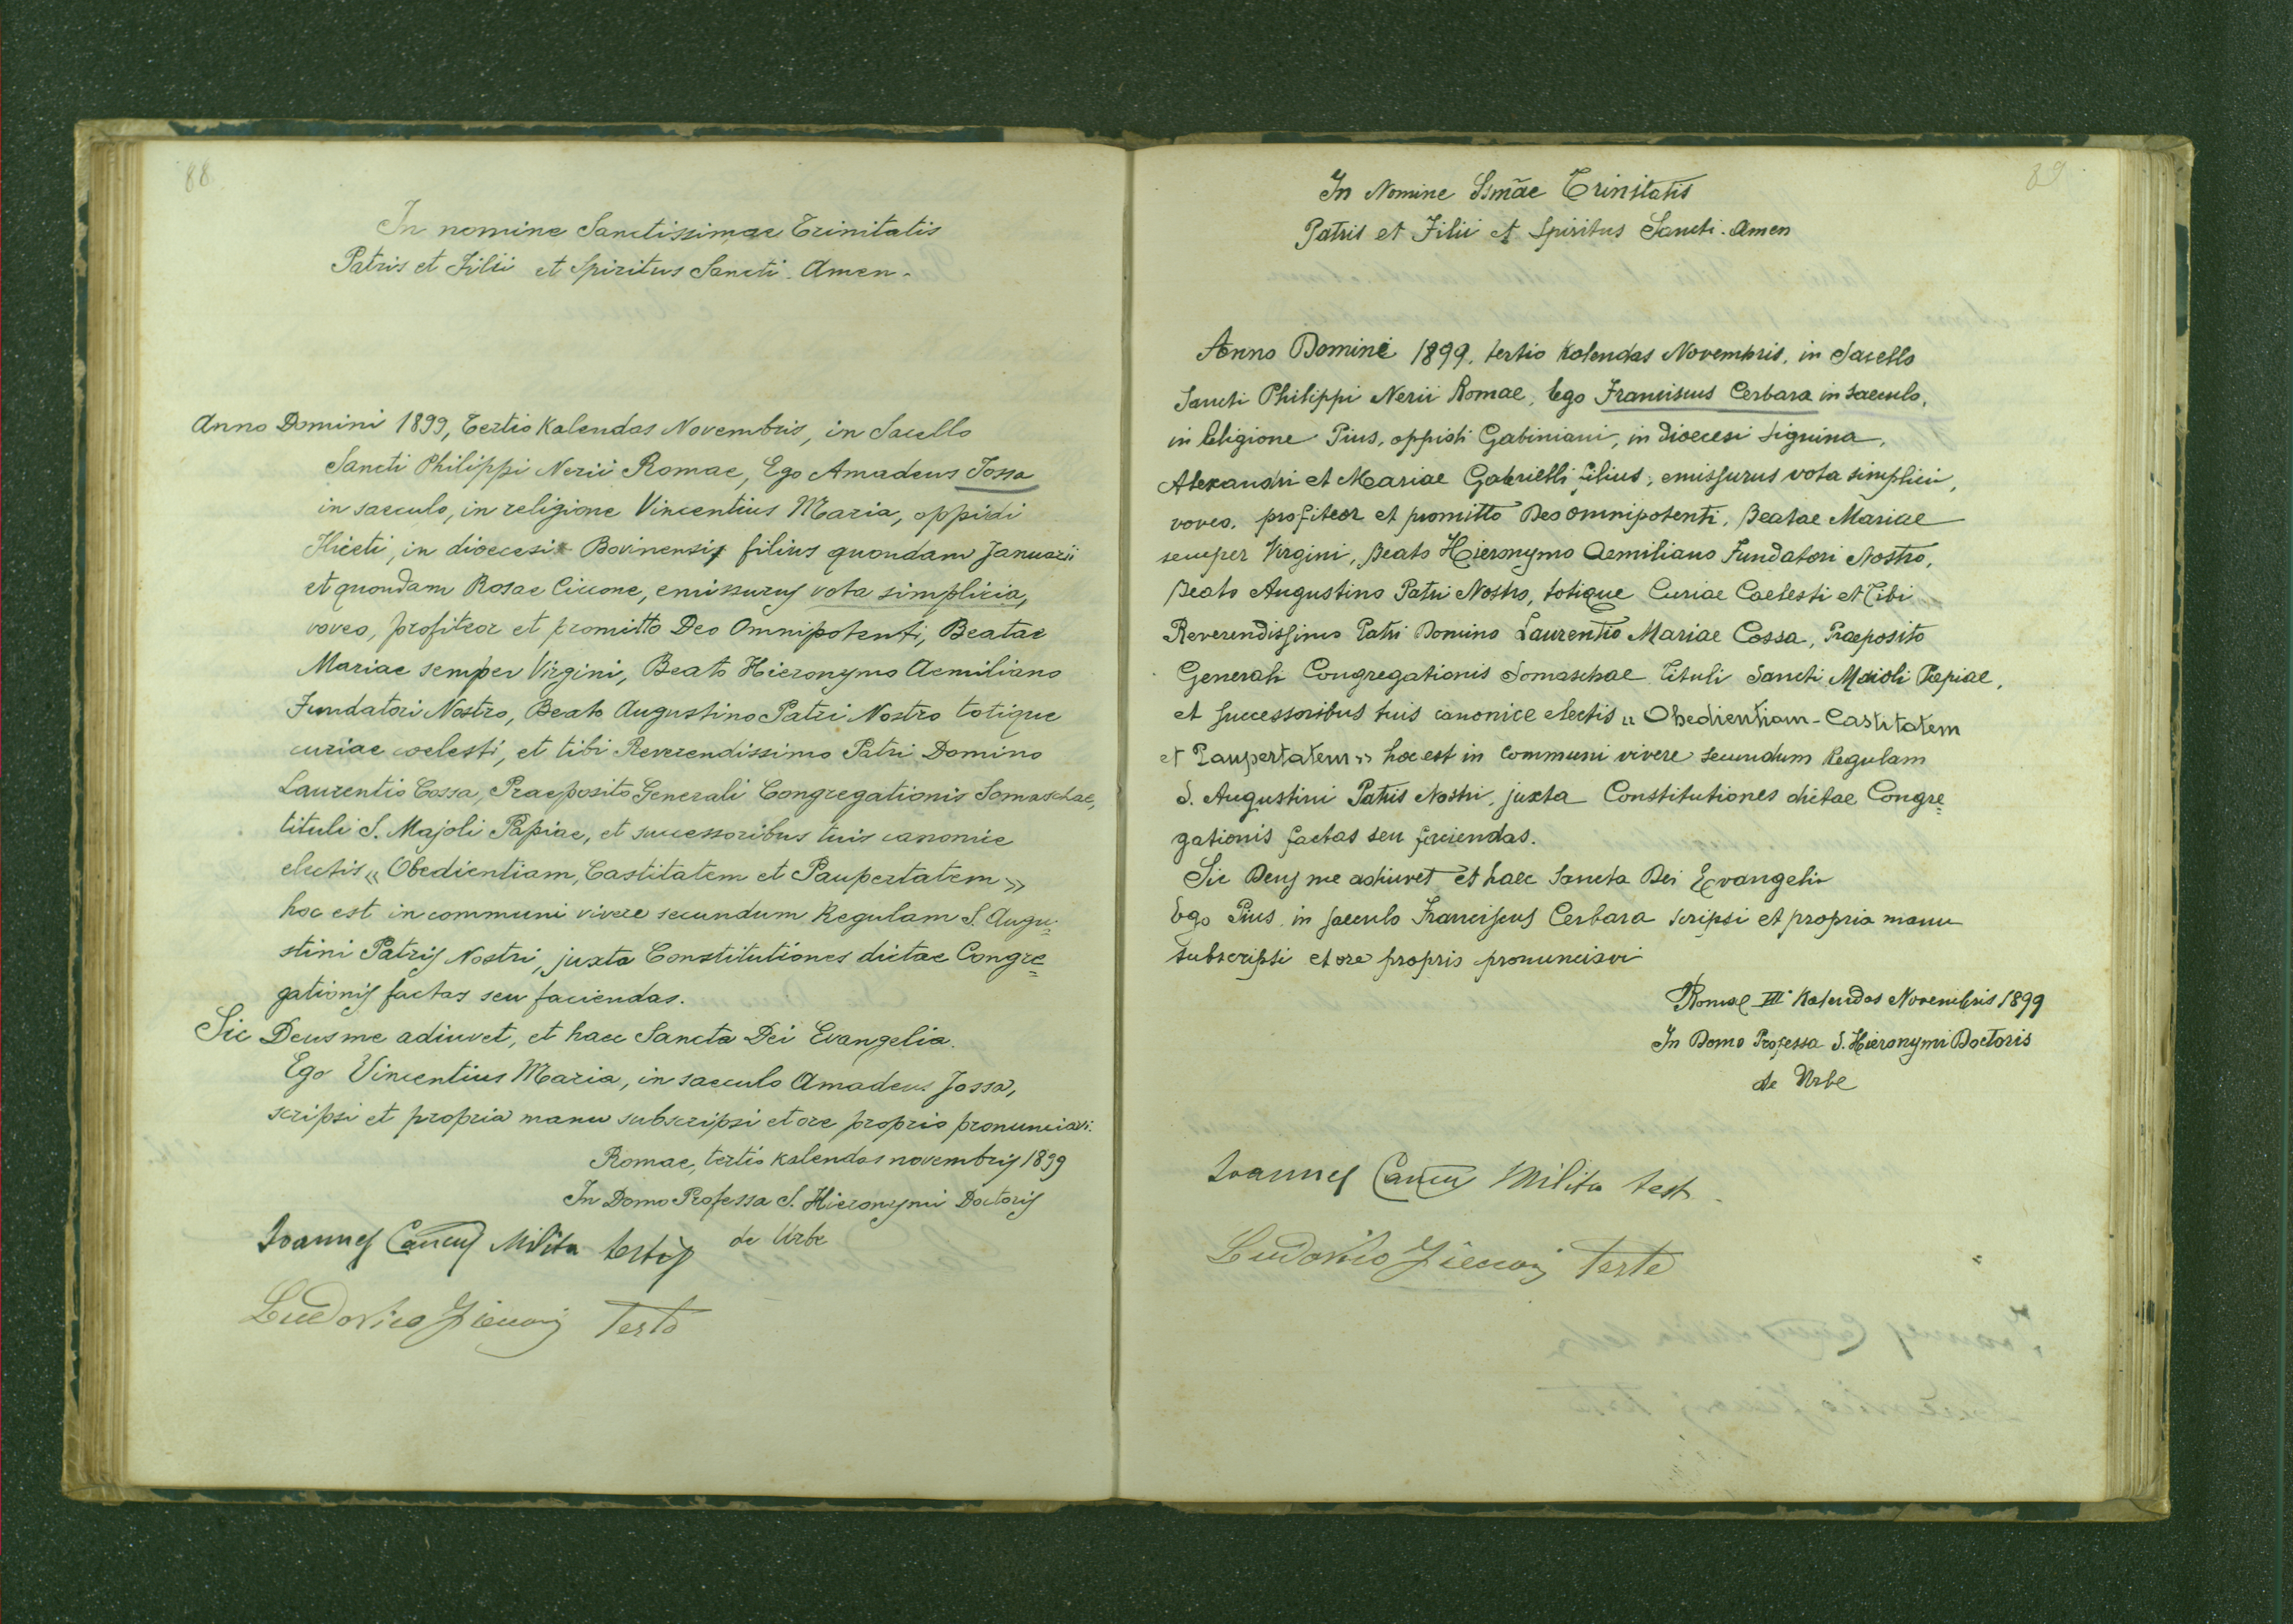 88
In nomine Sanctissimae Trinitatis
Patris et Filii et Spiritus Sancti. Amen.
Anno Domini 1899, Tertio Kalendas Novembris, in Sacello
Sancti Philippi Nerii Romae, Ego Amadeus Jossa
in saeculo, in religione Vincentius Maria, oppidi
Iliceti, in dioecesi Bovinensis filius quondam Januarii
et quondam Rosae Ciccone, emissurus vota simplicia,
voveo, profiteor et promitto Deo Omnipotenti, Beatae
Mariae semper Virgini, Beato Hieronymo Aemiliano
Fundatori Nostro, Beato Augustino Patri Nostro totique
curiae coelesti, et tibi Reverendissimo Patri Domino
Laurentio Cossa, Praeposito Generali Congregationis Somaschae,
tituli S. Majoli Papiae, et successoribus tuis canonice
electis « Obedientiam, Castitatem et Paupertatem »
hoc est in communi vivere secundum Regulam S. Augu=
stini Patris Nostri, juxta Constitutiones dictae Congre=
gationis factas seu faciendas.
Sic Deus me adiuvet, et haec Sancta Dei Evangelia.
Ego Vincentius Maria, in saeculo Amadeus Jossa,
scripsi et propria manu subscripsi et ore proprio pronunciavi.
Romae, tertio kalendas novembris 1899
In Domo Professa S. Hieronymi Doctoris
de Urbe
Ioannes Milita testis
Ludovico Teste
89
In Nomine Ssmae Trinitatis
Patris et Filii et Spiritus Sancti. Amen
Anno Domini 1899, tertio Kalendas Novembris, in Sacello
Sancti Philippi Nerii Romae, Ego Franciscus Cerbara in saeculo,
in Religione Pius, oppidi Gabiniani, in dioecesi Signina,
Alexandri et Mariae Gabrielli filius, emissurus vota simplici,
voveo, profiteor et promitto Deo omnipotenti, Beatae Mariae
semper Virgini, Beato Hieronymo Aemiliano Fundatori Nostro,
Beato Augustino Patri Nostro, totique Curiae Caelesti et Tibi
Reverendissimo Patri Domino Laurentio Mariae Cossa, Praeposito
Generali Congregationis Somaschae Tituli Sancti Maioli Papiae,
et successoribus tuis canonice electis « Obedientiam - Castitatem
et Paupertatem » hoc est in communi vivere secundum Regulam
S. Augustini Patris Nostri, juxta Constitutiones dictae Congre=
gationis factas seu faciendas.
Sic Deus me adiuvet et haec Sancta Dei Evangelia
Ego Pius in saeculo Franciscus Cerbara scripsi et propria manu
subscripsi et ore proprio pronunciavi
Romae III° Kalendas Novembris 1899
In Domo Professa S. Hieronymi Doctoris
de Urbe
Ioannes Milita test.
Ludovico Teste